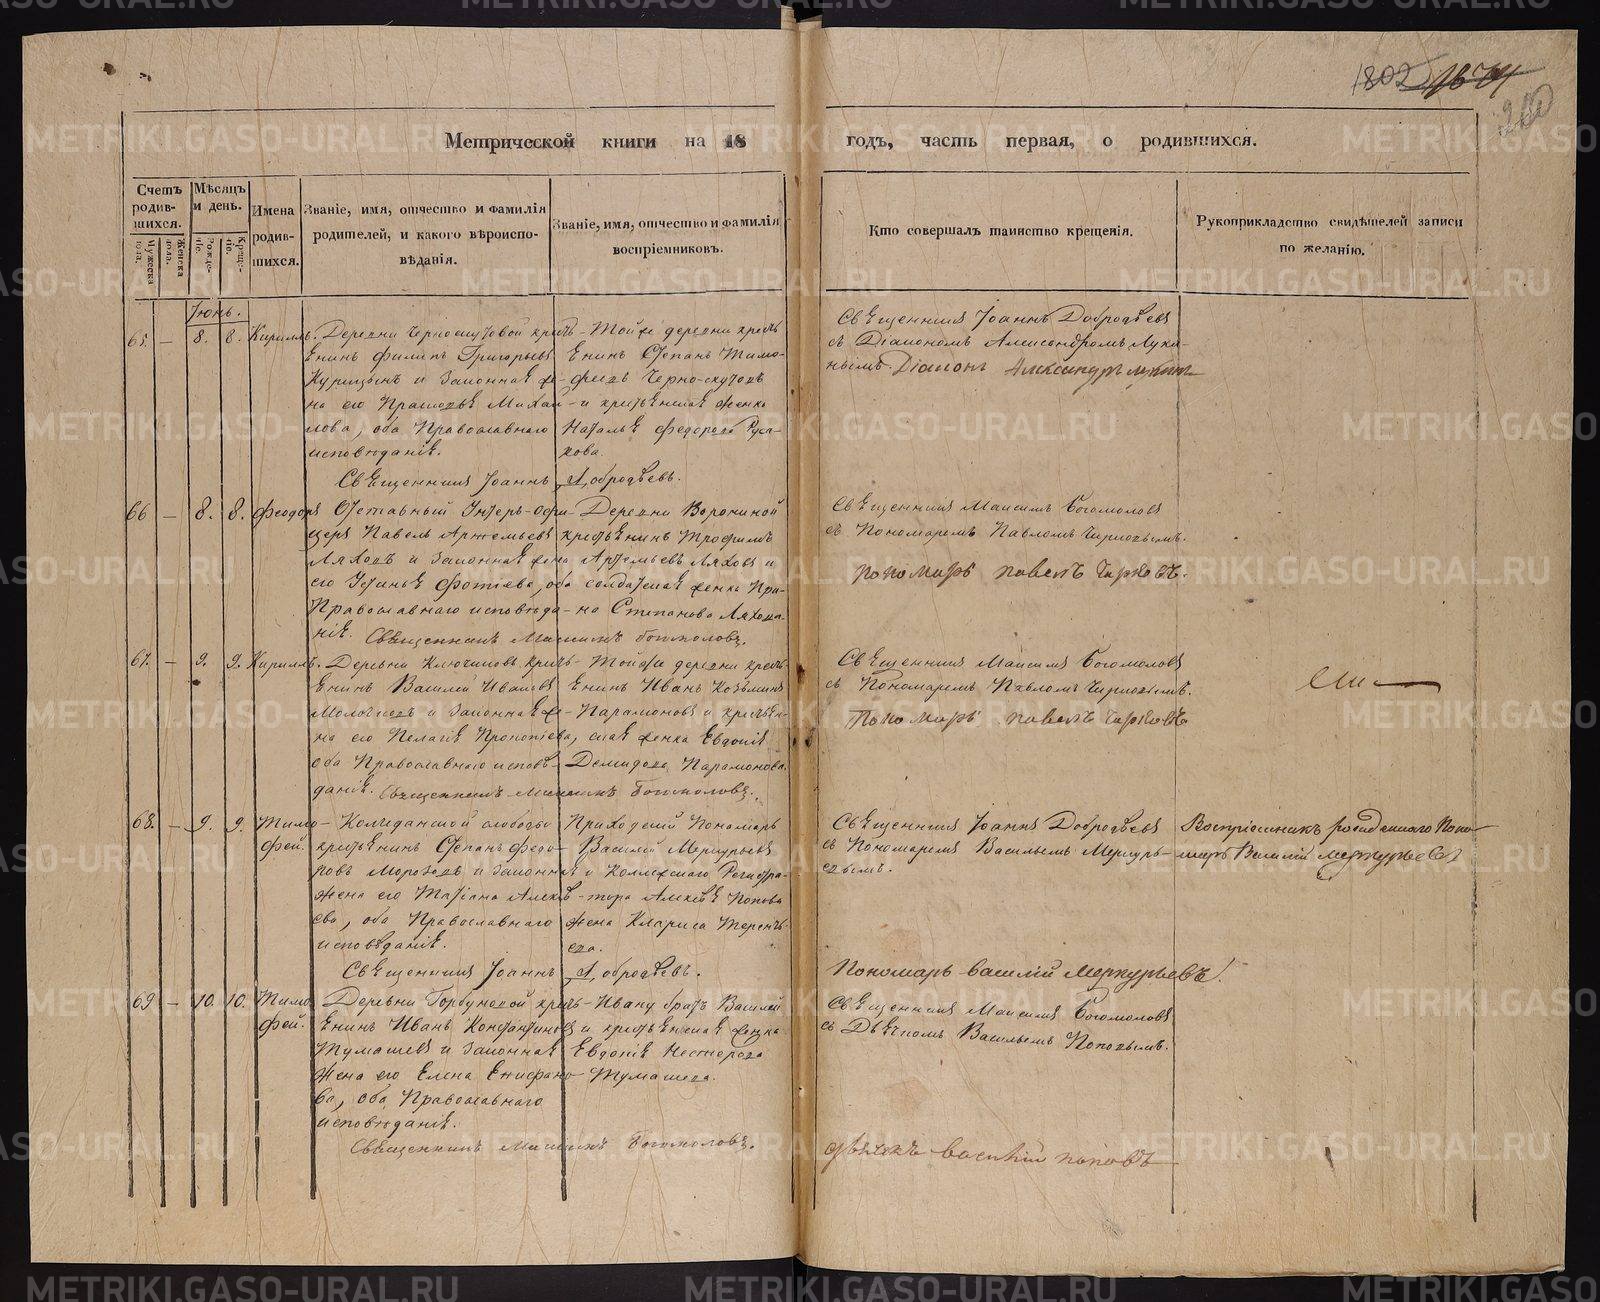 1802
Метрической книги на 18 годъ, часть первая, о родившихся.
Счетъ родив-шихся.
Мужеска пола.
Женска пола.
Мѣсяцъ и день.
Рожде-нія.
Креще-нія.
Имена родив-шихся.
Званіе, имя, отчество и фамилія родителей, и какого вѣроиспо-вѣданія.
Званіе, имя, отчество и фамилія воспріемниковъ.
Кто совершалъ таинство крещенія.
Рукоприкладство свидѣтелей записи по желанію.
Іюнь.
65. — 8. 8. Кириллъ.
Деревни Черноскутовой кресть-
янинъ Филипъ Григорьевъ
Курицынъ и законная же-
на его Прасковья Михай-
лова, оба Православнаго
исповѣданія.
Тойже деревни кресть-
янинъ Степанъ Тимо-
фѣевъ Черноскутовъ
и крестьянская женка
Наталья Федорова Руса-
кова.
Священникъ Іоаннъ Добродѣевъ.
Священникъ Іоаннъ Добродѣевъ
съ Діакономъ Александромъ Луки-
нымъ. Діаконъ Александръ Лукинъ
66 — 8. 8. Феодоръ
Отставный Унтеръ-офи-
церъ Павелъ Артемьевъ
Ляховъ и законная жена
его Устинья Фотіева, оба
Православнаго исповѣда-
нія.
Деревни Ворониной
крестьянинъ Трофимъ
Артемьевъ Ляховъ и
солдатская женка Ири-
на Степанова Ляхова.
Священникъ Максимъ Богомоловъ.
Священникъ Максимъ Богомоловъ
съ Пономаремъ Павломъ Чирковымъ.
Пономарь Павелъ Чирковъ.
67. — 9. 9. Кириллъ.
Деревни Ключиковъ кресть-
янинъ Василій Ивановъ
и законная же-
на его Пелагія Прокопіева,
оба Православнаго исповѣ-
данія.
Тойже деревни кресть-
янинъ Иванъ Козьминъ
Парамоновъ и крестьян-
ская женка Евдокія
Демидова Парамонова.
Священникъ Максимъ Богомоловъ.
Священникъ Максимъ Богомоловъ
съ Пономаремъ Павломъ Чирковымъ.
Пономарь Павелъ Чирковъ
68. — 9. 9. Тимо-
фей.
Колчеданской слободы
крестьянинъ Степанъ Федо-
ровъ Морозовъ и законная
жена его Татіана Алексѣ-
ева, оба Православнаго
исповѣданія.
Приходскій Пономарь
Василій Меркурьевъ
и Коллежскаго Регистра-
тора Алексѣя Попова
жена Клариса Терентье-
ева.
Священникъ Іоаннъ Добродѣевъ.
Священникъ Іоаннъ Добродѣевъ
съ Пономаремъ Васильемъ Меркурь-
евымъ.
Пономарь Василій Меркурьевъ!
Воспріемникъ рожденнаго Поно-
марь Василій Меркурьевъ
69 — 10. 10. Тимо
фей.
Деревни Горбуновой кресть-
янинъ Иванъ Константиновъ
Тумашевъ и законная
жена его Елена Епифано-
ва, оба Православнаго
исповѣданія.
Ивану братъ Василій
и крестьянская женка
Евдокія Нестерова
Тумашева.
Священникъ Максимъ Богомоловъ.
Священникъ Максимъ Богомоловъ
съ Дьячкомъ Васильемъ Поповымъ.
Дьячекъ Василій Поповъ
METRIKI.GASO-URAL.RU